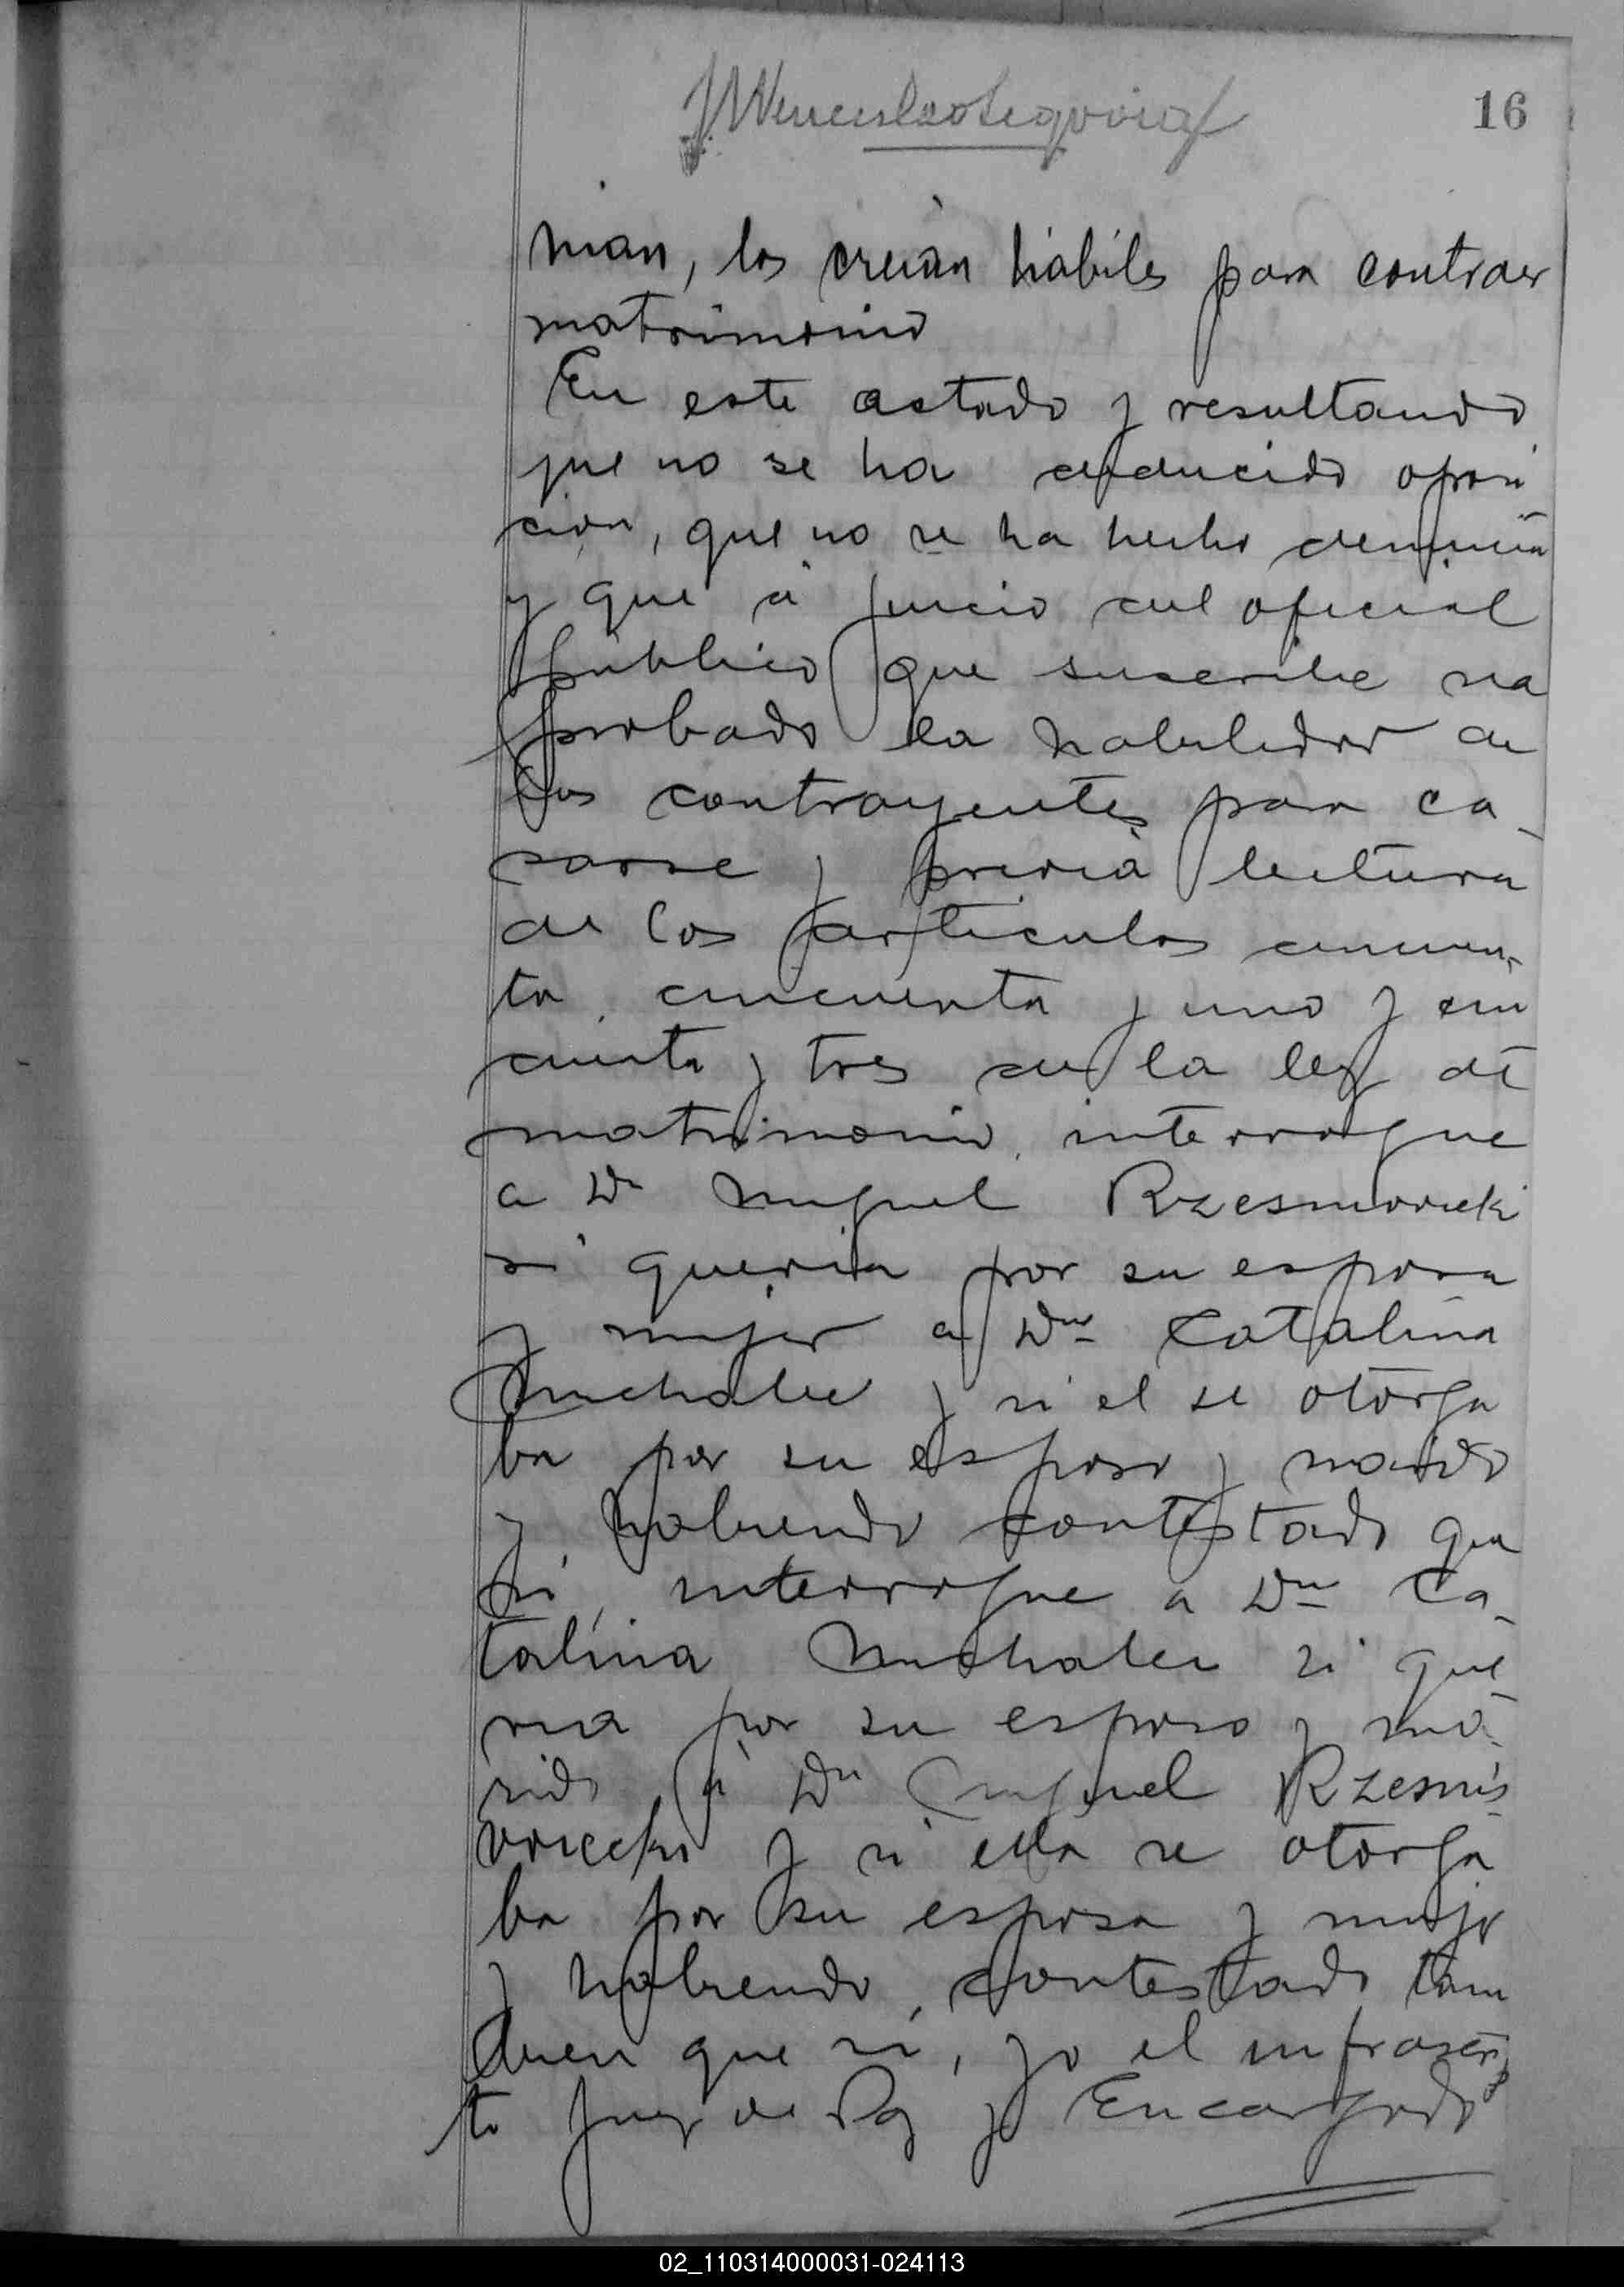 16
nian, los creian hábiles para contraer
matrimonio
En este estado y resultando
que no se ha deducido oposi
cion, que no se ha hecho denuncia
y que á juicio del oficial
publico que suscribe se ha
probado la habilidad de
los contrayentes para ca-
sarse y previa lectura
de los articulos cincuen-
ta, cincuenta y uno y cin
cuenta y tres de la ley de
matrimonio, interrogue
a Dn Miguel Rzesniovieki
si queria por su esposa
y mujer a Dna Catalina
Michalec y si el se otorga
ba por su esposo y marido
y habiendo contestado que
si, interrogue a Dna Ca-
talina Michalec si que
ria por su esposo y ma-
rido á Dn Miguel Rzesnis-
voiecki y si ella se otorga
ba por su esposa y mujer
y habiendo contestado tam
bien que si, yo el infrascri
to Juez de Paz y Encargado
02_110314000031-024113